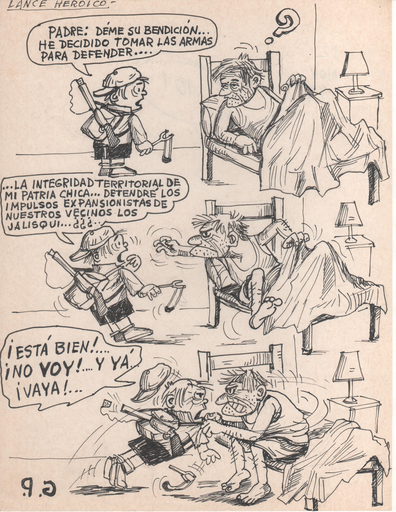 LANCE HEROICO.-
PADRE: DÉME SU BENDICIÓN...
HE DECIDIDO TOMAR LAS ARMAS
PARA DEFENDER....
?
...LA INTEGRIDAD TERRITORIAL DE
MI PATRIA CHICA... DETENDRÉ LOS
IMPULSOS EXPANSIONISTAS DE
NUESTROS VECINOS LOS
JALISQUI...¿¿¿...
¡ESTÁ BIEN!....
¡NO VOY!.... Y YÁ
¡VAYA!...
G.P.